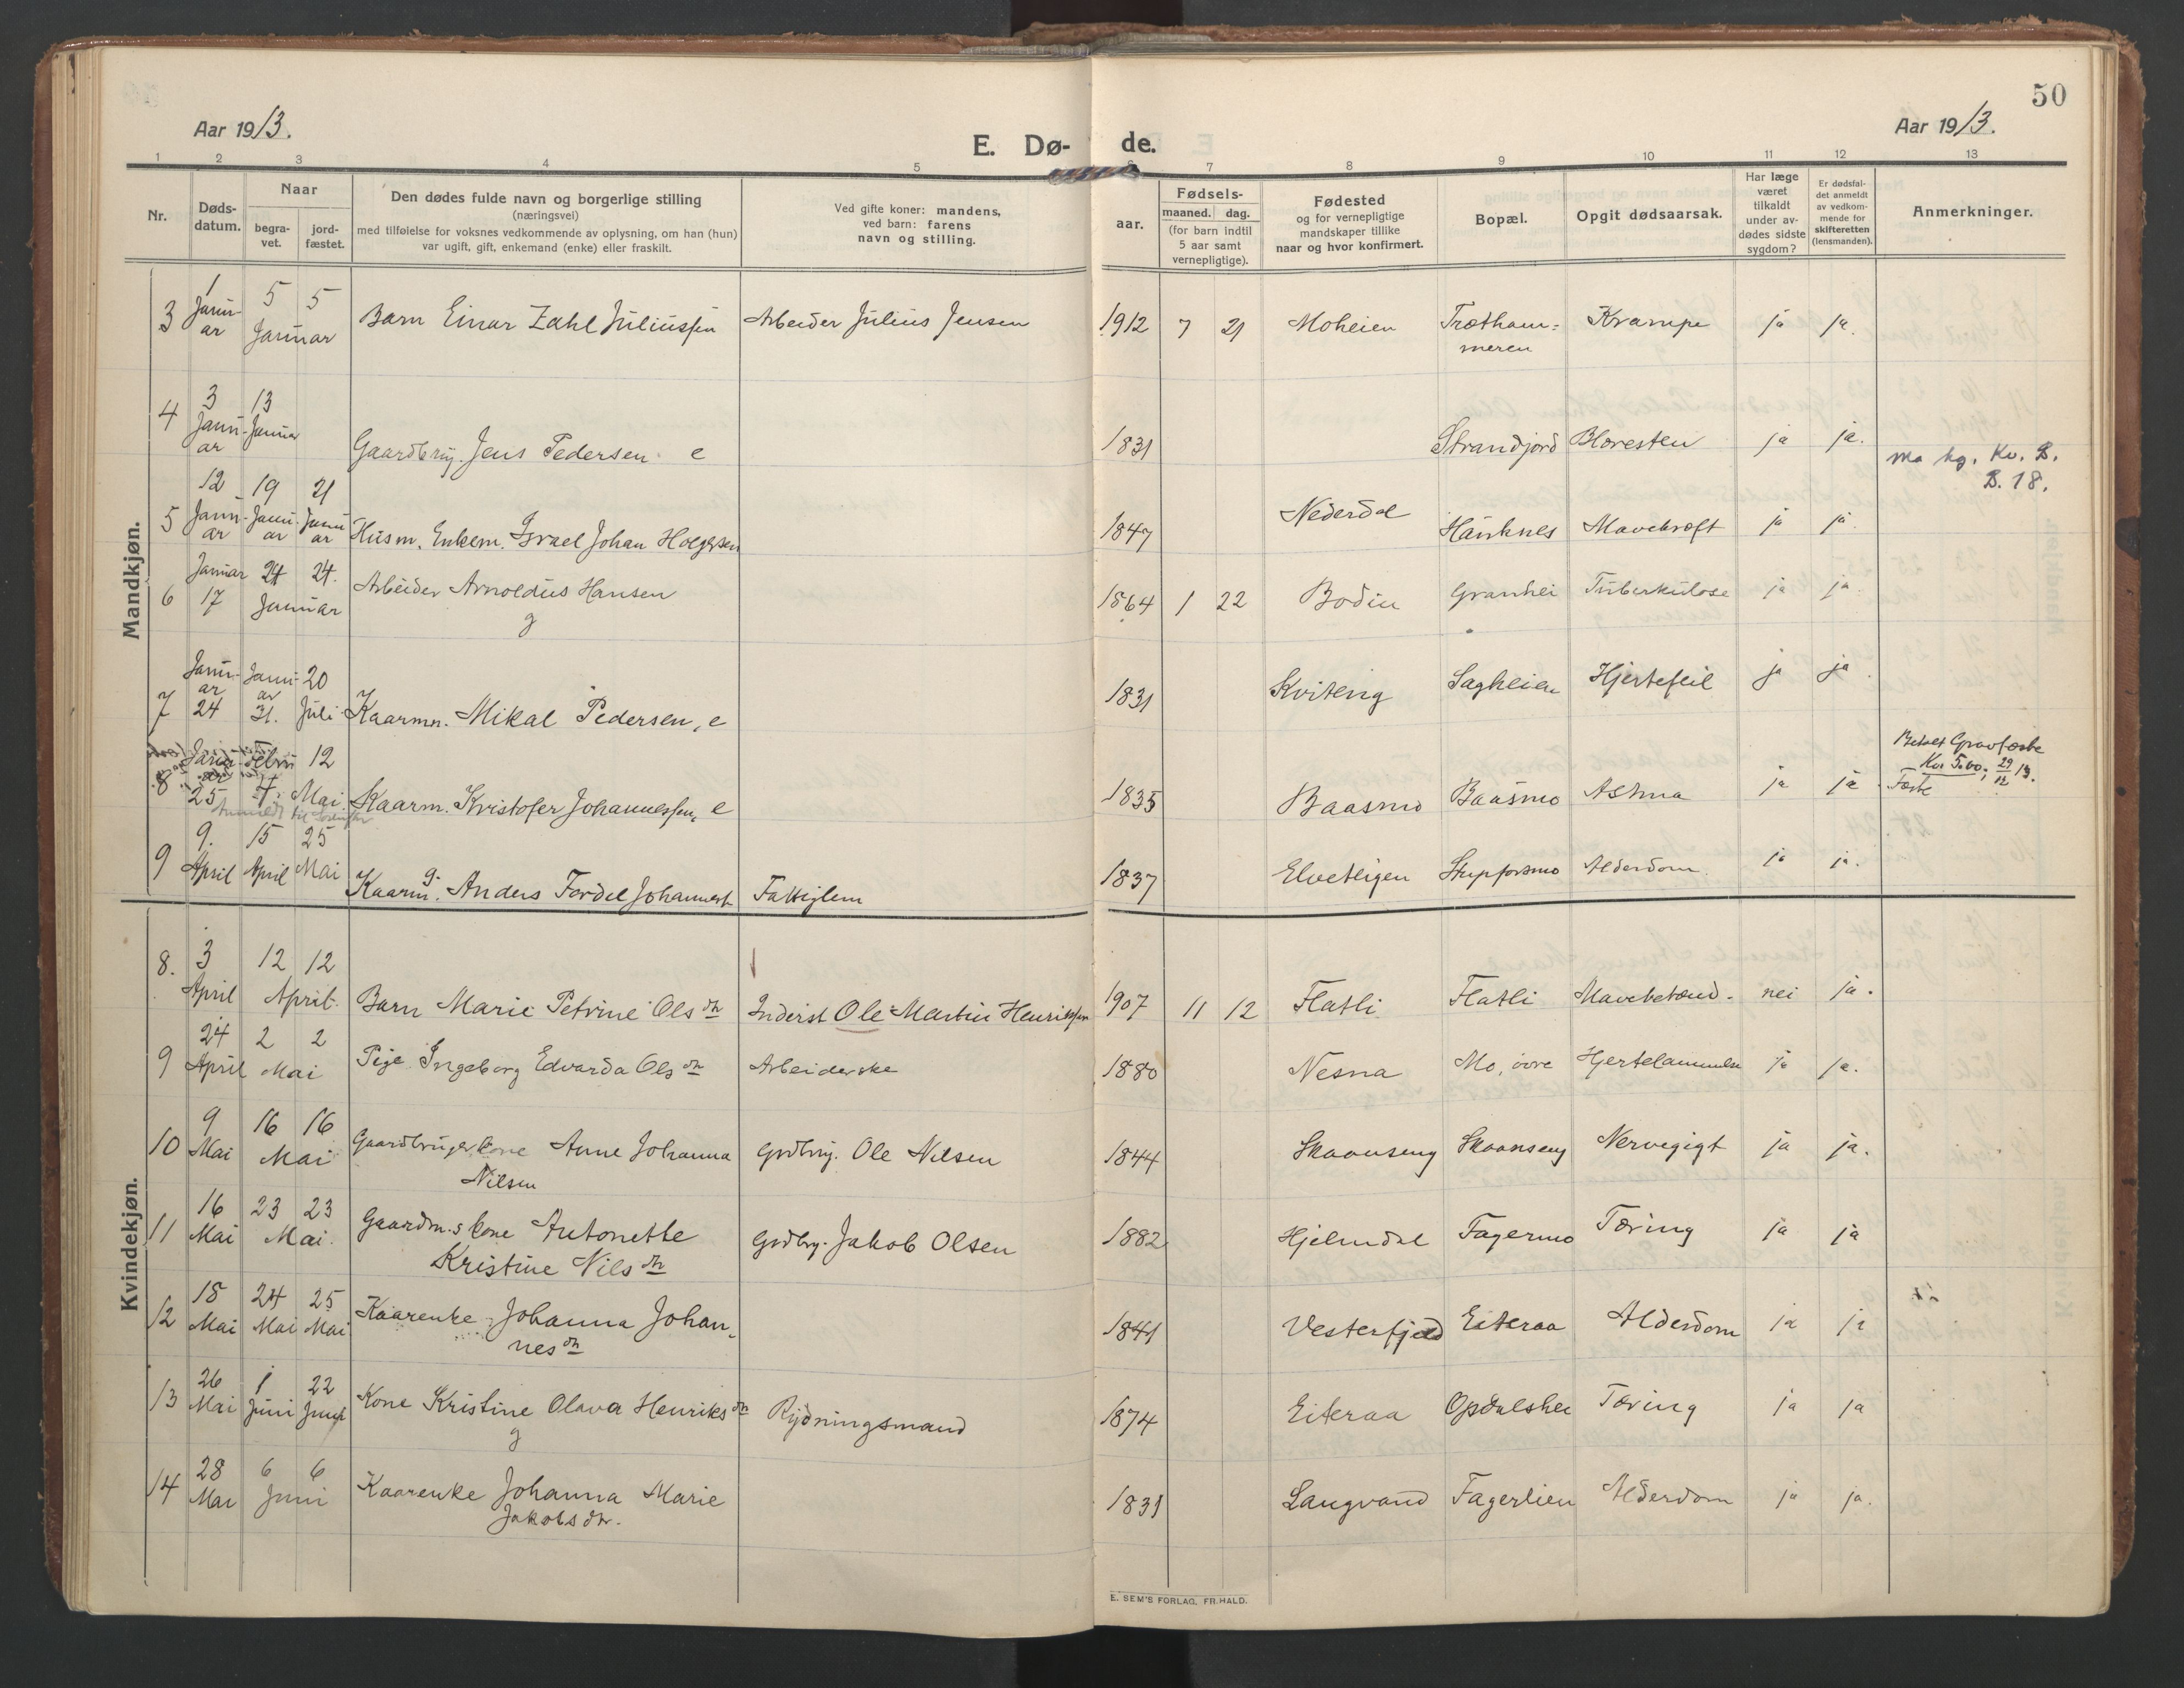 50
Aar 1913.
Aar 1913.
E. Dø-
de.
1 2 3 4 5 6 7 8 9 10 11 12 13
Nr.
Døds-
datum.
Naar
begra-
vet.
jord-
fæstet.
Den dødes fulde navn og borgerlige stilling
(næringsvei)
med tilføielse for voksnes vedkommende av oplysning, om han (hun)
var ugift, gift, enkemand (enke) eller fraskilt.
Ved gifte koner: mandens,
ved barn: farens
navn og stilling.
Fødsels-
aar.
maaned. dag.
(for barn indtil
5 aar samt
vernepligtige).
Fødested
og for vernepligtige
mandskaper tillike
naar og hvor konfirmert.
Bopæl.
Opgit dødsaarsak.
Har læge
været
tilkaldt
under av-
dødes sidste
sygdom?
Er dødsfal-
det anmeldt
av vedkom-
mende for
skifteretten
(lensmanden).
Anmerkninger.
Mandkjøn.
3 1 Janu-ar 5 5 Januar Barn Einar Zahl Juliussen Arbeider Julius Jensen 1912 7 21 Moheien Trætham=meren Krampe ja ja.
4 3 Janu-ar 13 Januar Gaardbrug. Jens Pedersen e 1831 Strandjord Blæresten ja ja.
5 12 Janu-ar 19 Janu-ar 21 Januar Husm. Enkem. Israel Johan Holgersen 1847 Nederdal Hauknes Mavekræft ja ja.
6 Januar 17 24 24. Januar Arbeider Arnoldus Hansen g 1864 1 22 Bodin Granhei Tuberkulose ja ja.
7 Janu-ar 24 Janu-ar 31. 20 Juli Kaarmn. Mikal Pedersen, e 1831 Kviteng Sagheien Hjertefeil ja ja.
8 Janu-ar 25 Febru 7. 12 Mai. Kaarm. Kristofer Johannessen, e 1835 Baasmo Baasmo Astma ja ja. Betalt Gravfæste Kr. 5.00; 29/12 13.
Fæste
9 9. April 15 April 25 Mai Kaarm. g. Anders Fordel Johannes Fattiglem 1837 Elvetligen Stupforsmo Alderdom. ja ja.
Kvindekjøn.
8. 3 April 12 12 April. Barn Marie Petrine Olsdn Inderst Ole Martin Henriksen 1907 11 12 Flatli Flatli Mavebetænd. nei ja.
9 24 April 2 2 Mai Pige Ingeborg Edvarda Olsdn Arbeiderske 1880 Nesna Mo, øvre Hjertelammelse ja ja.
10 9 Mai 16 16 Mai Gaardbrugerkone Anne Johanna
Nilsen Grdbrug. Ole Nilsen 1844 Skaanseng Skaanseng Nervegigt ja ja.
11 16 Mai 23 23 Mai. Gaardm.s kone Antonette
Kristine Nilsdn Grdbrg. Jakob Olsen 1882 Hjelmdal Fagermo Tæring ja ja
12 18 Mai 24 Mai 25 Mai. Kaarenke Johanna Johan-
nesdn 1841 Vesterfjeld Eiteraa Alderdom ja ja
13 26 Mai 1 Juni 22 Juni Kone Kristine Olava Henriksdn g Rydningsmand 1874 Eiteraa Opdalshei Tæring ja ja
14 28 Mai 6 6 Juni Kaarenke Johanna Marie
Jakobsdtr. 1831 Langvand Fagerlien Alderdom ja ja.
E. SEM'S FORLAG, FR. HALD.